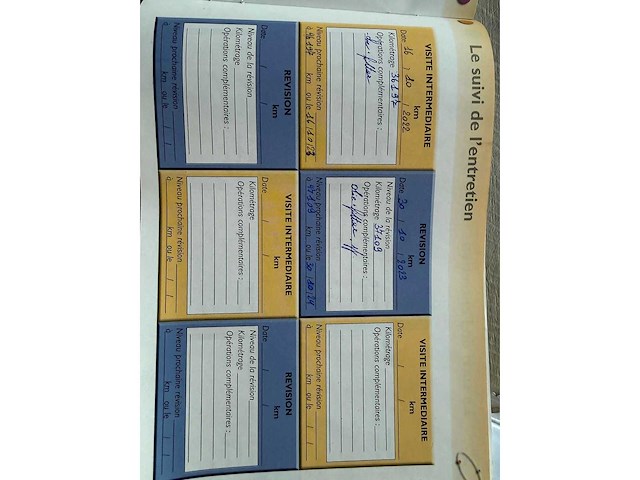 Le suivi de l'entretien
VISITE INTERMEDIAIRE
km
Date 16 / 10 / 2022
Kilométrage 36137
Opérations complémentaires :
Niveau prochaine révision
à km ou le 16/10/23
REVISION
km
Date 30 / 10 / 2023
Niveau de la révision
Kilométrage 37109
Opérations complémentaires :
Niveau prochaine révision
à 47109 km ou le 30/10/24
VISITE INTERMEDIAIRE
km
Date / /
Kilométrage
Opérations complémentaires :
Niveau prochaine révision
à km ou le / /
REVISION
km
Date / /
Niveau de la révision
Kilométrage
Opérations complémentaires :
Niveau prochaine révision
à km ou le / /
VISITE INTERMEDIAIRE
km
Date / /
Kilométrage
Opérations complémentaires :
Niveau prochaine révision
à km ou le / /
REVISION
km
Date / /
Niveau de la révision
Kilométrage
Opérations complémentaires :
Niveau prochaine révision
à km ou le / /